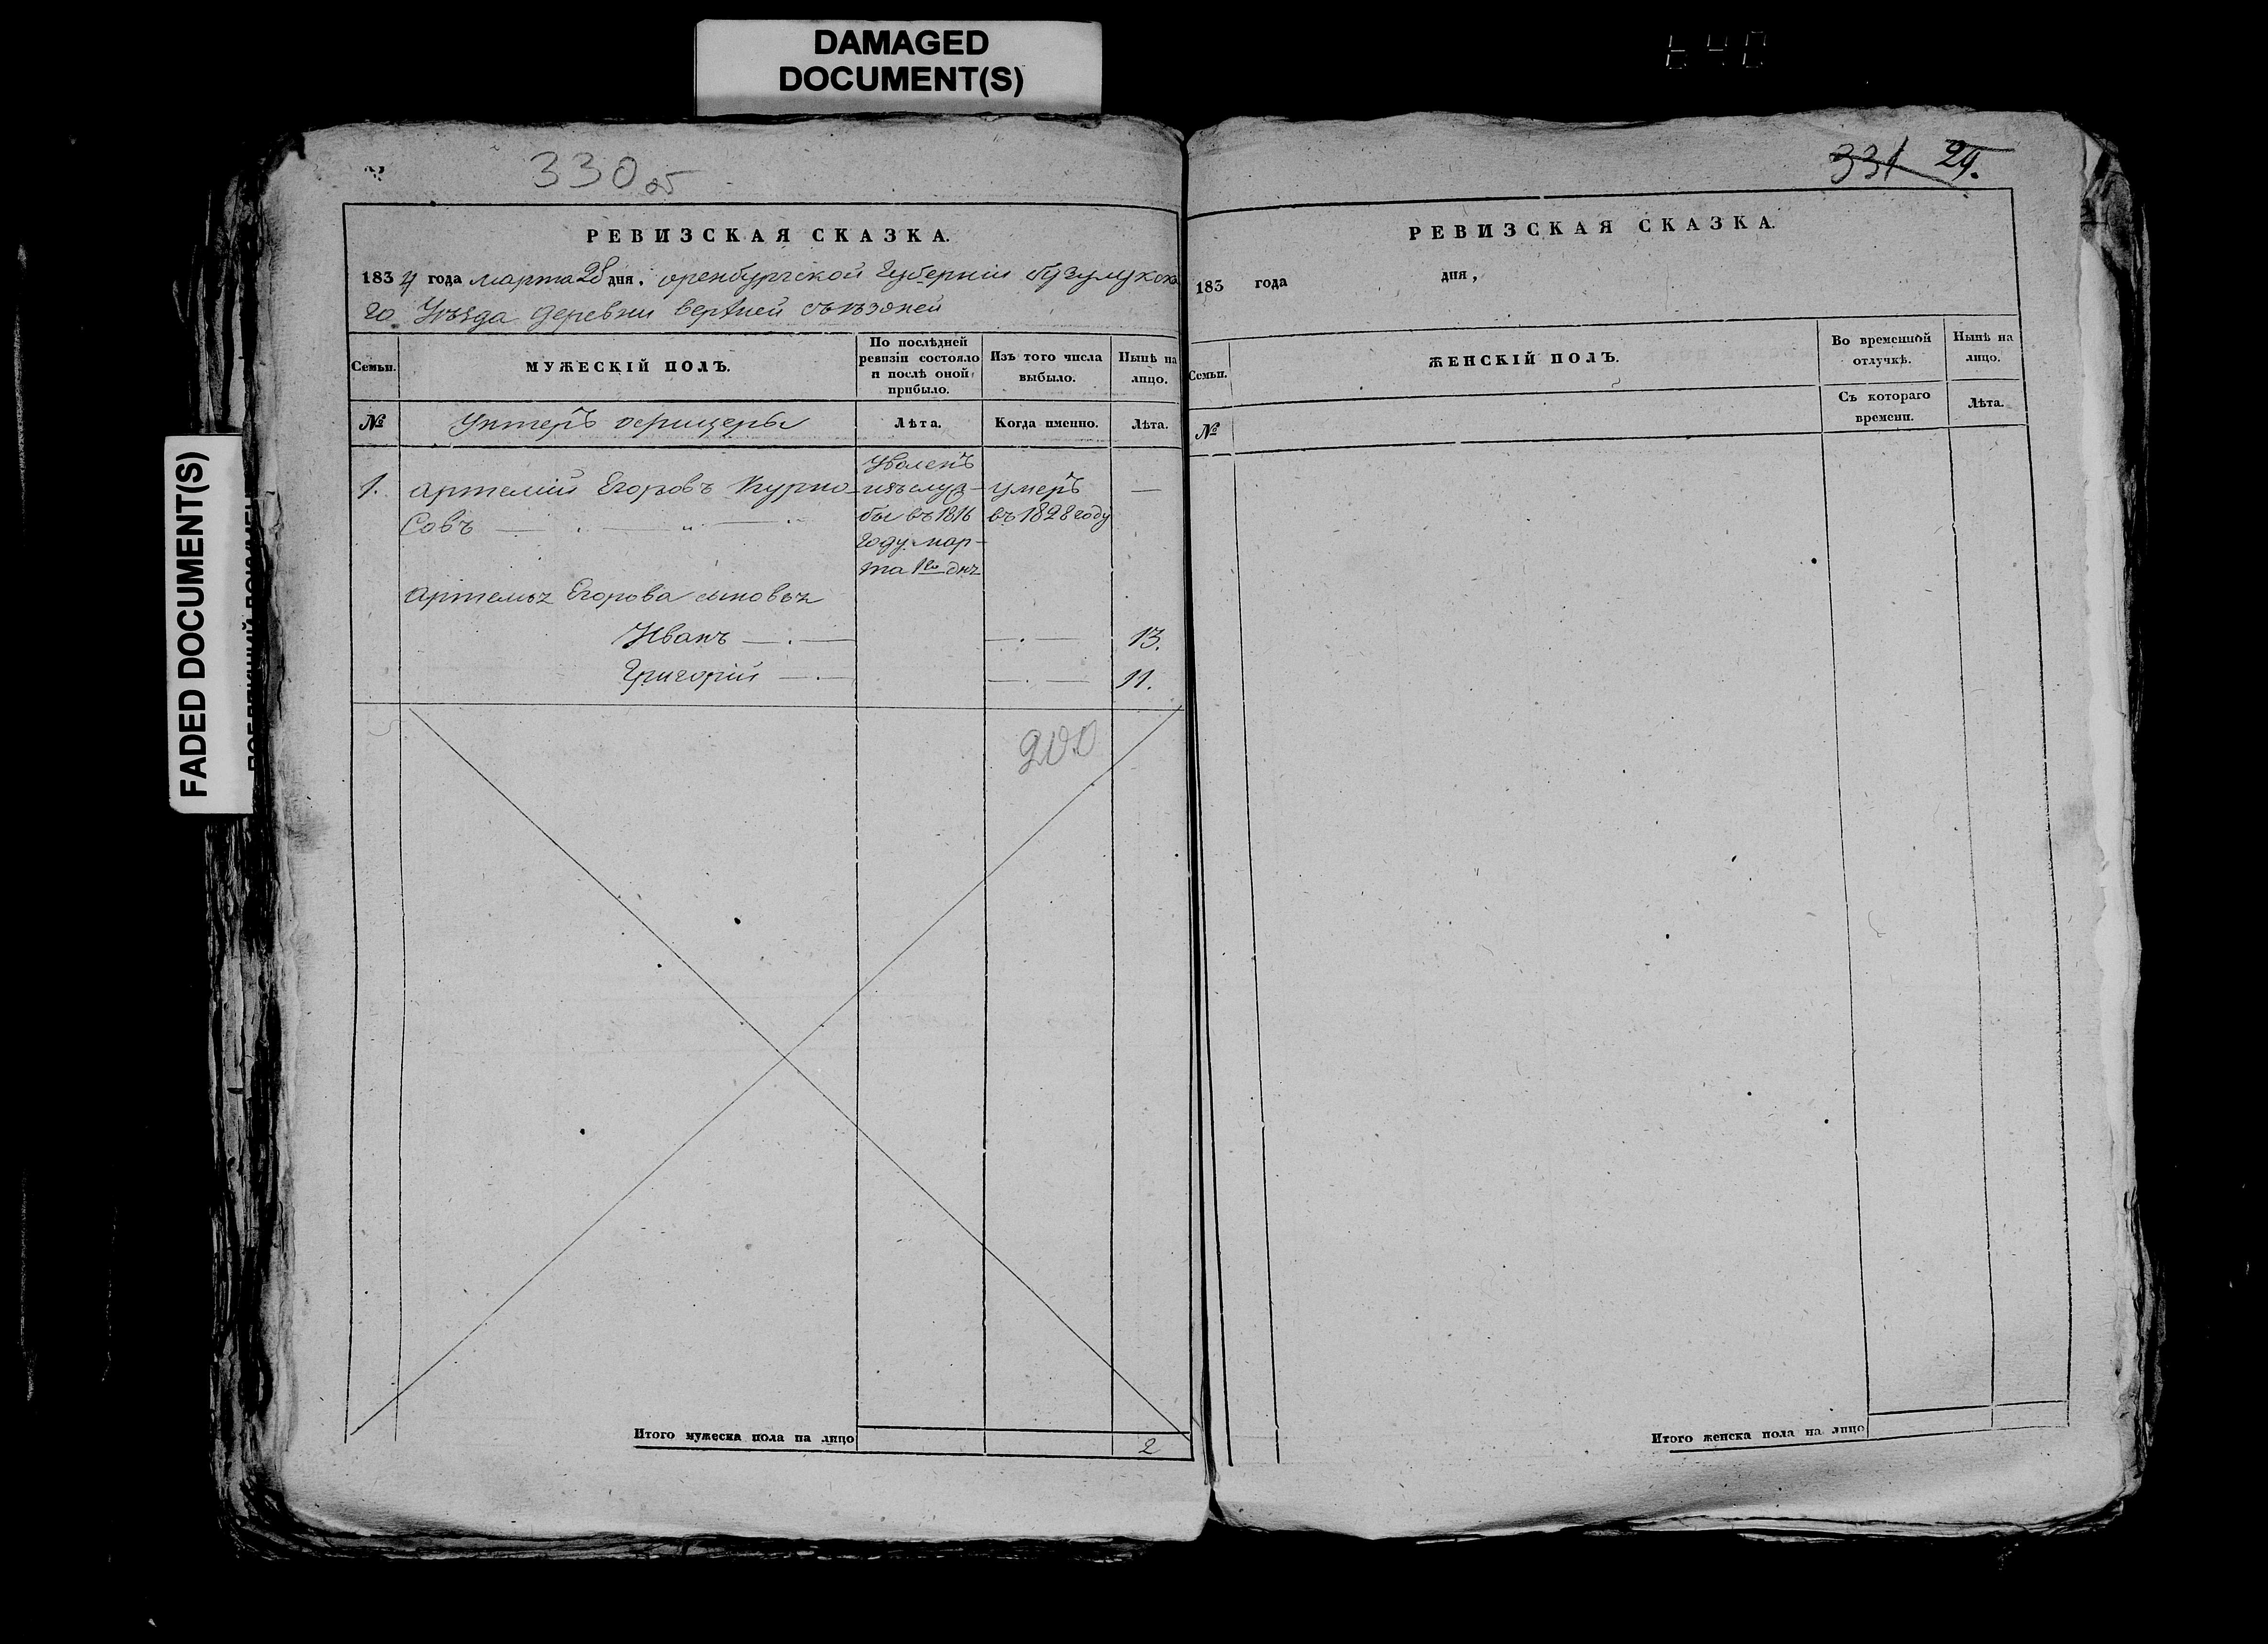 DAMAGED
DOCUMENT(S)
FADED DOCUMENT(S)
330 об
РЕВИЗСКАЯ СКАЗКА.
1834 года марта 28 дня, оренбургской Губернии бузулукска
го Уѣзда деревни верхней съѣзжей
Семьи.
МУЖЕСКІЙ ПОЛЪ.
По послѣдней ревизіи состояло и послѣ оной прибыло.
Изъ того числа выбыло.
Нынѣ на лицо.
№
Унтеръ офицеры
Лѣта.
Когда именно.
Лѣта.
1.
Артемій Егоровъ Курно-
совъ
Уволенъ
изъ служ-
бы въ 1816
году мар-
та 1го дня
умеръ
въ 1828 году
—
Артемья Егорова сыновья
Иванъ — . —
— . —
13.
Григорій — . —
— . —
11.
200
Итого мужеска пола на лицо
2
331 24.
РЕВИЗСКАЯ СКАЗКА.
183 года дня,
Семьи.
ЖЕНСКІЙ ПОЛЪ.
Во временной отлучкѣ.
Нынѣ на лицо.
№
Съ котораго времени.
Лѣта.
Итого женска пола на лицо